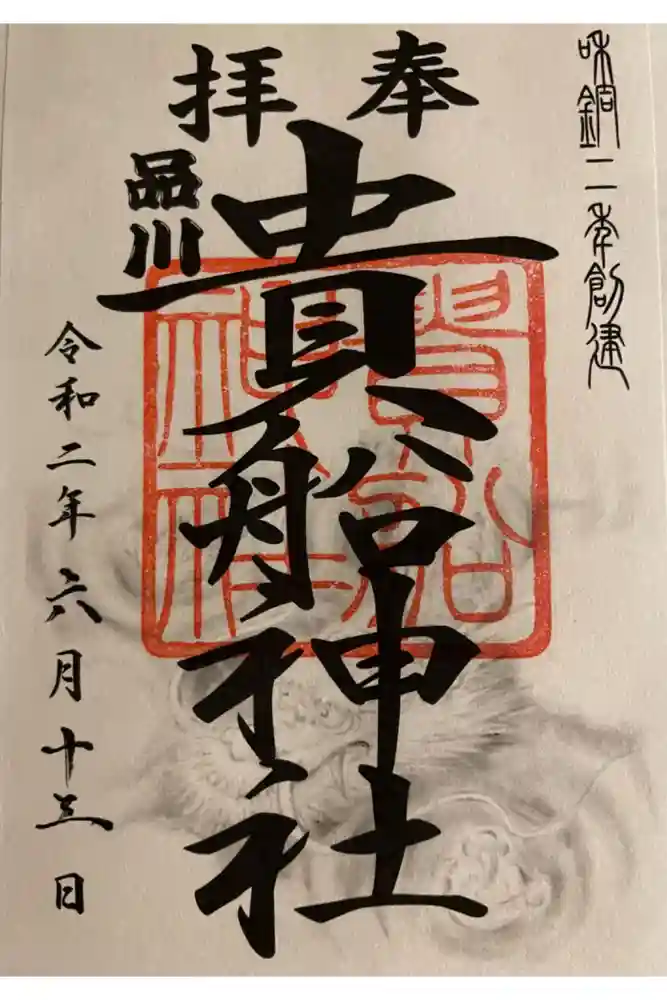 和銅二年創建
奉拝
品川
貴船神社
貴船
神社
令和二年六月十三日